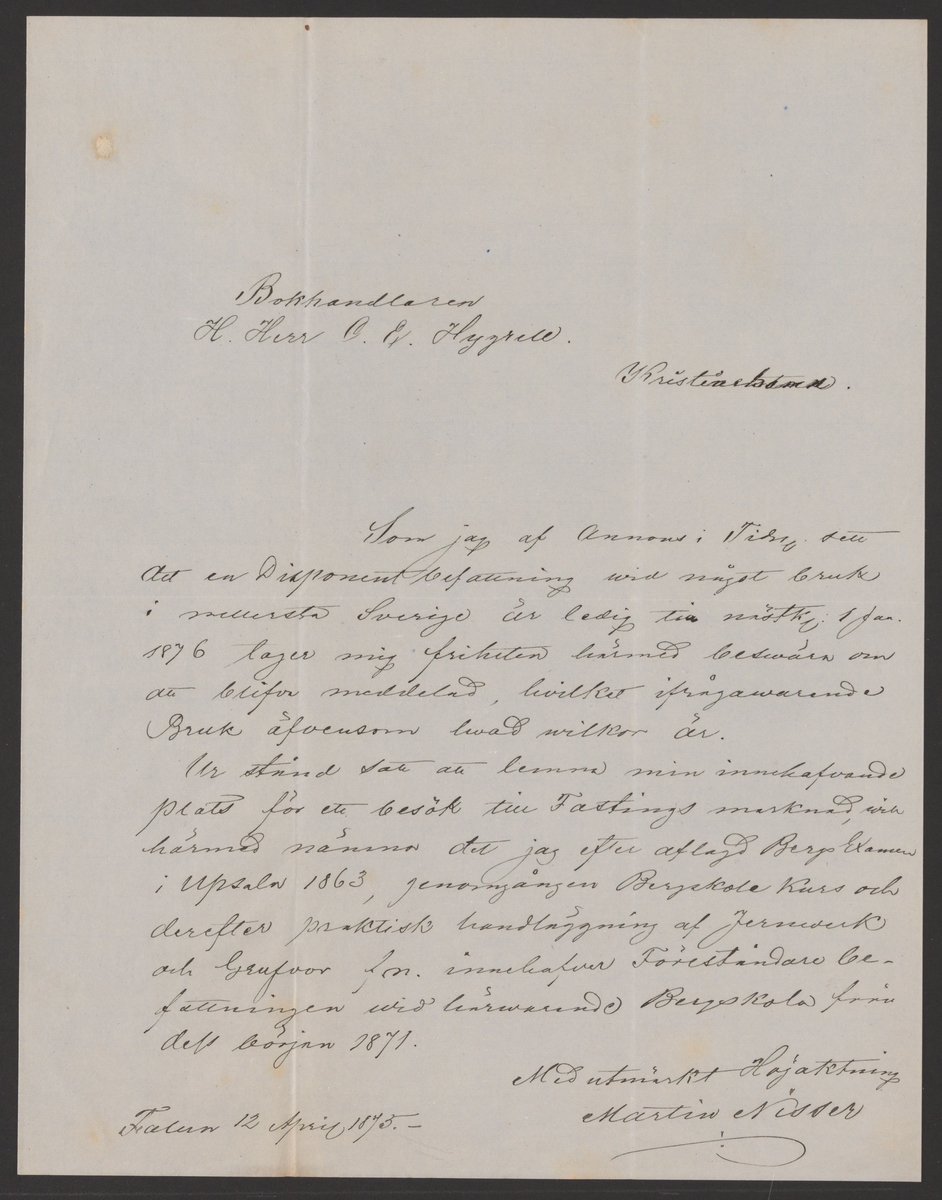 Bokhandlaren
H. Herr O. E. Hygrell.
Kristinehamn.
Som jag af Annons i Tidng. sett
att en Disponent befattning wid något bruk
i mellersta Sverige är ledig till nästk. 1 Jan.
1876 tager mig friheten härmed beswära om
att blifva meddelad, hvilket ifrågawarande
Bruk äfvensom hwad wilkor är.
Ur stånd satt att lemna min innehafvande
plats för ett besök till Fastings marknad, will
härmed nämna det jag efter aflagd Bergs Examen
i Upsala 1863, genomgången Bergskole Kurs och
derefter praktisk handläggning af Jernwerk
och Grufvor f n. innehafver Föreståndare be-
fattningen wid härwarande Bergskola från
dess början 1871.
Med utmärkt Högaktning
Martin Nisser
Falun 12 April 1875.-